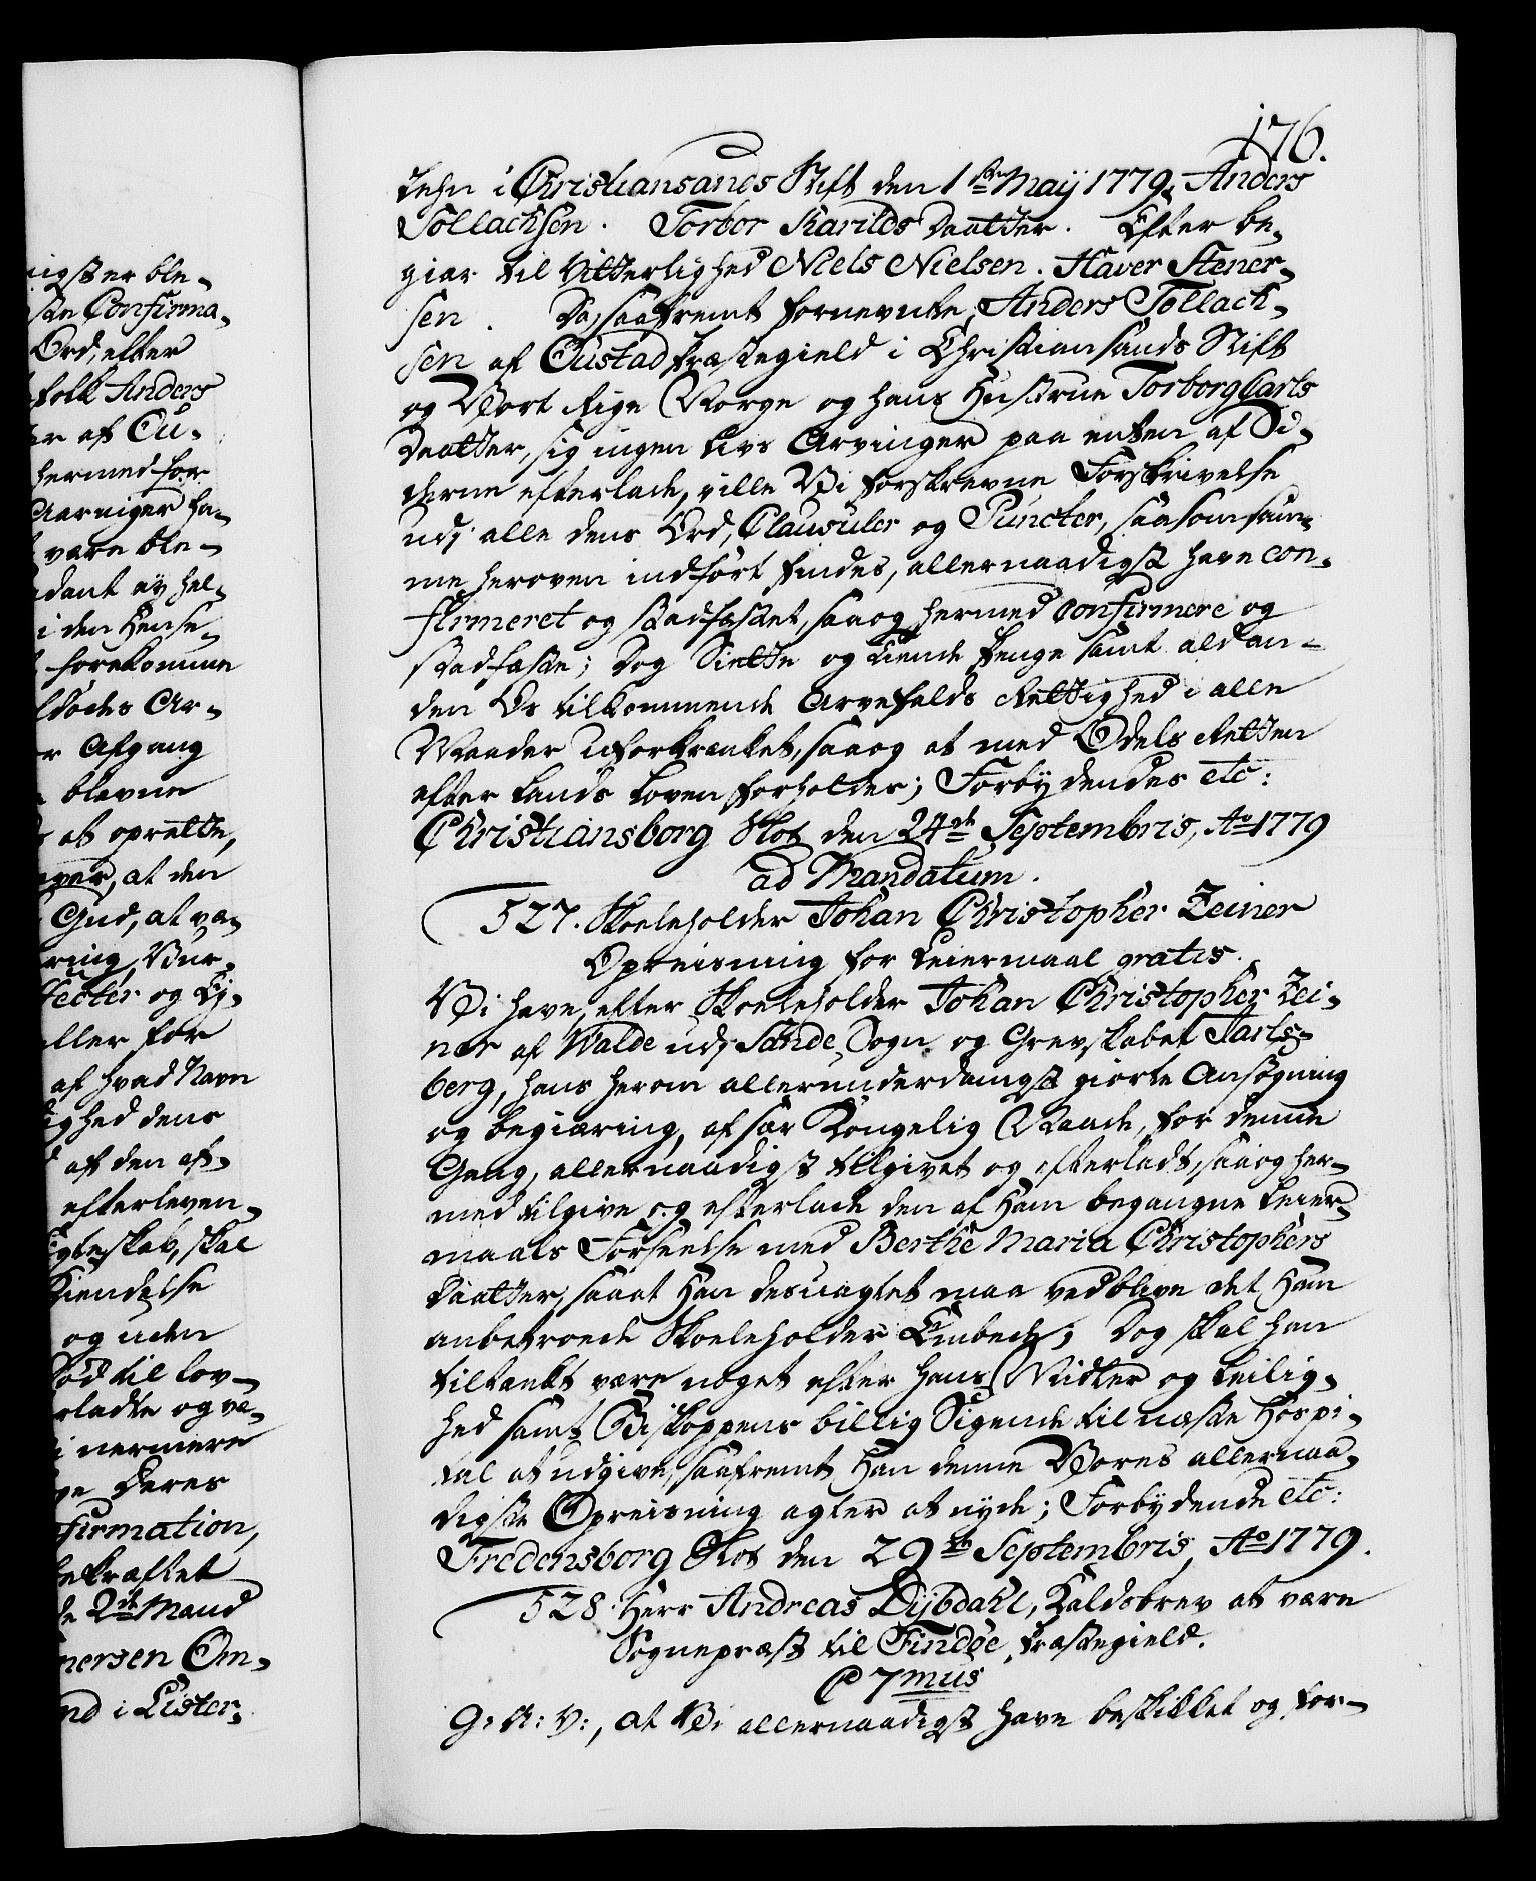 176.
Lehn i Christiansands Stift den 1ste Maij 1779. Anders
Tollachsen. Torbor Karilds Daatter. Efter be-
giær til Vitterlighed Niels Nielsen. Haver Stener-
sen. Da, saafremt fornevnte, Anders Tollach-
sen af Oustad Præstegield i Christiansands Stift
og Vort Rige Norge og hans Hustrue Torborg Carls
Daatter, sig ingen Livs Arvinger paa enten af Si-
derne efterlade, ville Vi forskrevne Forskrivelse
udj alle dens Ord, Clausuler og Puncter, saasom sam-
me heroven indført findes, allernaadigst have con-
firmeret og stadfæstet, saa og hermed confirmere og
stadfæste; Dog Siette og tiende Penge samt ald an-
den Os tilkommende Arvefalds Rettighed i alle
Maader uforkrænket, saa og at med Odels Retten
efter Lands Loven forholdes; Forbydendes etc:
Christiansborg Slot den 24de Septembris, Ao 1779
ad Mandatum.
527. Skoeleholder Johan Christopher Zeiner
Opreisning for Leiermaal gratis.
Vi have, efter Skoeleholder Johan Christopher Zei-
ner af Walde udj Sande Sogn og Grevskabet Jarls-
berg, hans herom allerunderdanigst giorte Ansøgning
og begiæring, af sær Kongelig Naade, for denne
Gang, allernaadigst tilgivet og efterladt, saa og her-
med tilgive og efterlade den af Ham begangne Leier-
maals Forseelse med Berthe Maria Christophers
Daatter, saa at Han desuagtet maa vedblive det Ham
anbetroede Skoeleholder Embede; Dog skal han
tiltænkt være noget efter hans Midler og Leilig-
hed samt Biskoppens billig Sigende til næste Hospi-
tal at udgive, saafremt Han denne Vores allernaa-
digste Opreisning agter at nyde; Forbydende etc:
Fredensborg Slot den 29de Septembris, Ao 1779.
528. Herr Andreas Dybdahl, Kaldsbrev at være
Sognepræst til Findøe Præstegield.
C 7mus
G: A: V:, at Vi allernaadigst have beskikket og for-